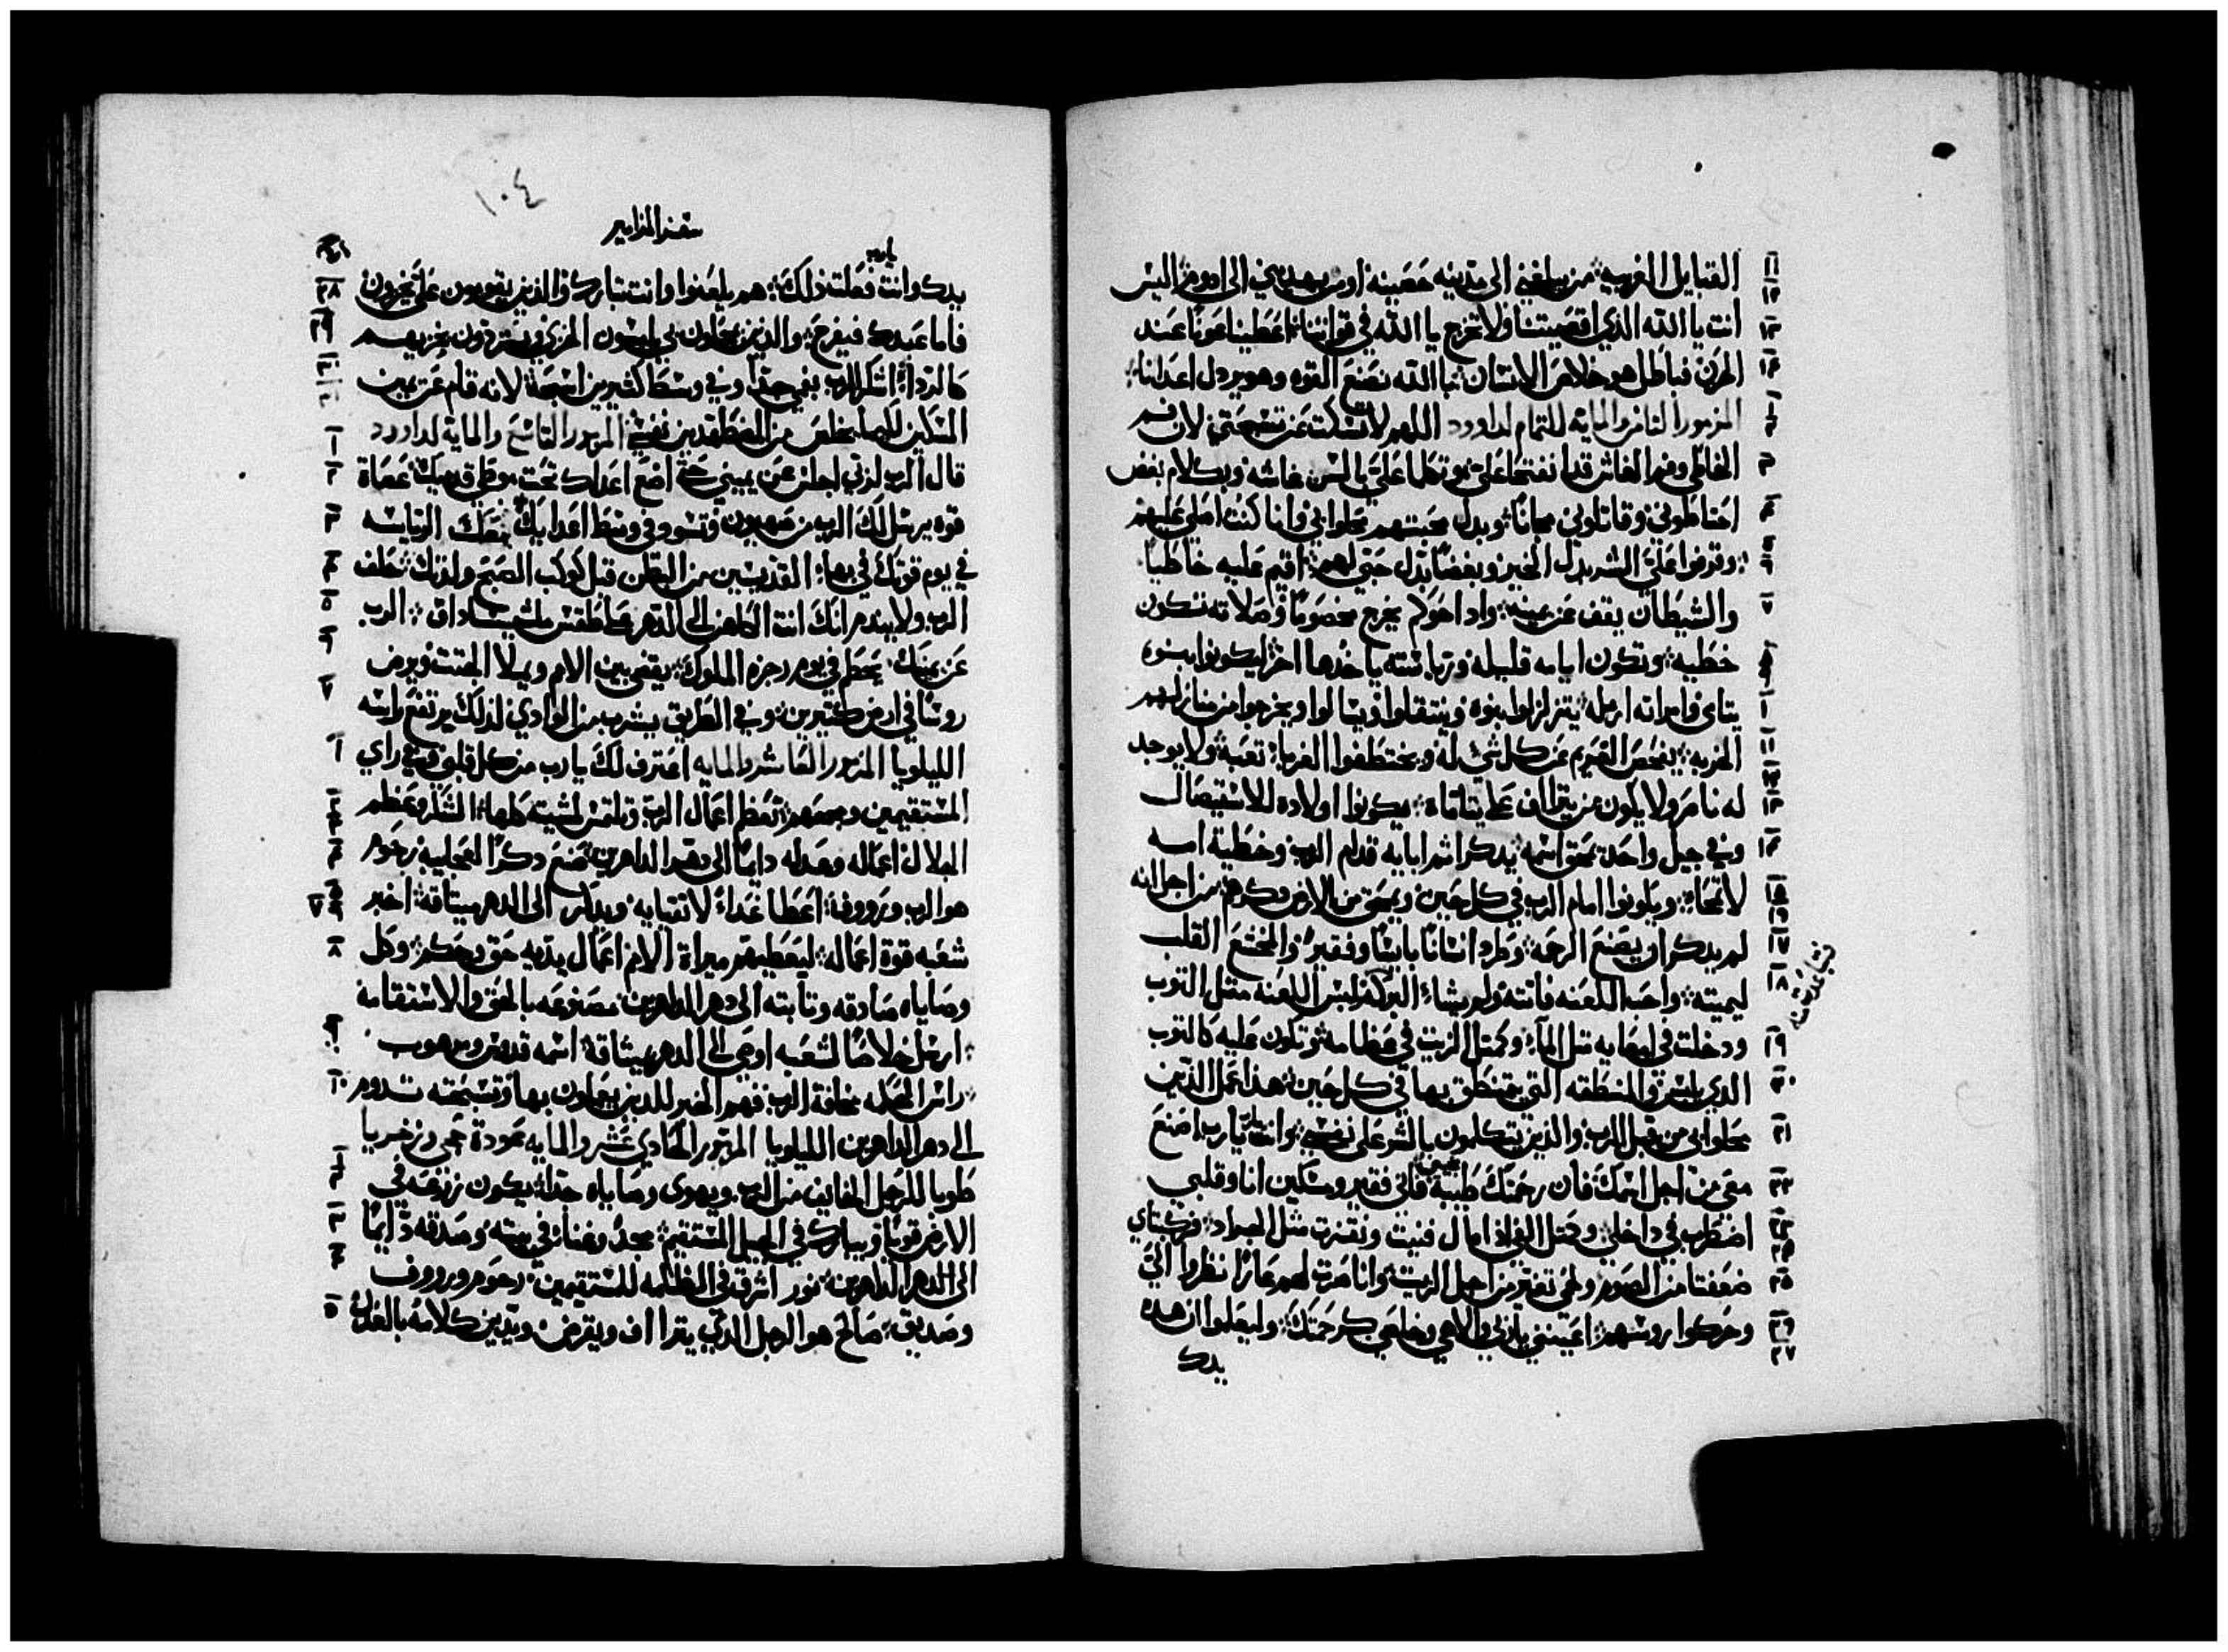 القبايل الغريبه من يبلغني الى مدينه حصينه او من يهديني الى ادوم اليس
انت يا الله الذي اقصيتنا ولا تخرج يا الله في قواتنا اعطينا عونا عند
الحزن فباطل هو خلاص الانسان بالله نصنع القوه وهو يردل اعدانا
المزمور الثامن والمايه للتمام لداوود اللهم لا تسكت عن تسبحتي لان فم
الخاطي وفم الغاش قد انفتحا علي وتكلما علي بالسن غاشه وبكلام بغض
احتاطوني وقاتلوني مجانا وبدل محبتهم محلوا بي وانا كنت اصلي عليهم
وقرفوا علي الشر بدل الخير وبغضا بدل حبي لهم اقيم عليه خاطيا
والشيطان يقف عن يمينه وادا حوكم يخرج مخصوما وصلاته تكون
خطيه وتكون ايامه قليله ورياسته ياخدها اخر ليكونوا بنوه
يتامى وامراته ارمله يتزلزلوا بنوه وينتقلوا ويسالوا ويخرجوا من منازلهم
الخربه يفحص الغريم عن كل شي له ويختطفوا الغربا تعبه ولا يوجد
له ناصر ولا يكون من يتراف على يتاماه يكونوا اولاده للاستيصال
وفي جيل واحد يمحق اسمه يدكر اثم ابايه قدام الرب وخطية امه
لا تمحاه ويكونوا امام الرب في كل حين ويمحق من الارض دكرهم من اجل انه
لم يدكر ان يصنع الرحمه وطرد انسانا بايسا وفقيرا والمخشع القلب
ليميته واحب اللعنه فاتته ولم يشاء البركه لبس اللعنه متل التوب
ودخلت في امعايه متل الماء وكمتل الزيت في عظامه وتكون عليه كالتوب
الذي يلبس والمنطقه التي يتمنطق بها في كل حين هذا عمل الدين
محلوا بي من قبل الرب والذين يتكلمون بالشر على نفسي وانت يا رب يا رب اصنع
معي من اجل اسمك فان رحمتك طيبه نجيني فاني فقير ومسكين انا وقلبي
اضطرب في داخلي وكمتل الفي اذا مال فنيت ونفزت مثل الجراد ركبتاي
ضعفتا من الصوم ولحمي تغير من اجل الزيت وانا صرت لهم عارا نظروا الي
وحركوا روسهم اعينني يا ربي والاهي وخلصني كرحمتك وليعلموا ان هده
يدك
١٠٤
سفر المزامير
يدك وانت يا رب فعلت ذلك هم يلعنوا وانت تبارك والذين يقومون علي يخزون
فاما عبدك فيفرح والذين يمحلون بي يلبسون الخزي ويستردون بخزيهم
كالرداء اشكر الرب بفمي جدا وفي وسط كثيرين اسبحه لانه قام عن يمين
المسكين لكيما يخلص من المضطهدين نفسي المزمور التاسع والمايه لداوود
قال الرب لربي اجلس عن يميني حتى اضع اعداك تحت موطى قدميك عصاة
قوه يرسل لك الرب من صهيون وتسود في وسط اعدايك معك الرياسه
في يوم قوتك في بهاء القديسين من البطن قبل كوكب الصبح ولدتك حلف
الرب ولا يندم انك انت الكاهن الى الدهر على طقس ملشيساداق الرب
عن يمينك يحطم في يوم رجزه الملوك يقضي بين الامم ويملا الجتت ويرض
روسا في ارض كتيرين وفي الطريق يشرب من الوادي لذلك يرتفع راسه
الليلويا المزمور العاشر والمايه اعترف لك يا رب من كل قلبي في راي
المستقيمين ومجمعهم تعظم اعمال الرب وتلتمس لمشيته كلها الشكر وعظم
الجلال اعماله وعدله دايما الى دهر الداهرين صنع دكرا لعجايبه رحوم
هو الرب وروف اعطا غداء لاتقيايه ويدكر الى الدهر ميتاقه اخبر
شعبه قوة اعماله ليعطيهم ميراة الامم اعمال يديه حق وحكم وكل
وصاياه صادقه وتابته الى دهر الداهرين مصنوعه بالحق والاستقامه
ارسل خلاصا لشعبه اوصى الى الدهر ميثاقه اسمه قدوس ومرهوب
راس الحكمه مخافة الرب فهم الخير للدين يعملون بها وتسبحته تدوم
الى دهر الداهرين الليلويا المزمور الحادي عشر والمايه عودة حجي وزخريا
طوبا للرجل الخايف من الرب ويهوى وصاياه جدا يكون زرعه في
الارض قويا ويبارك في الجيل المستقيم مجد وغناء في بيته وصدقه دايما
الى دهر الداهرين نور اشرق في الظلمه للمستقيمين رحوم وروف
وصديق صالح هو الرجل الدي يتراف ويقرض ويدبر كلامه بالعدل